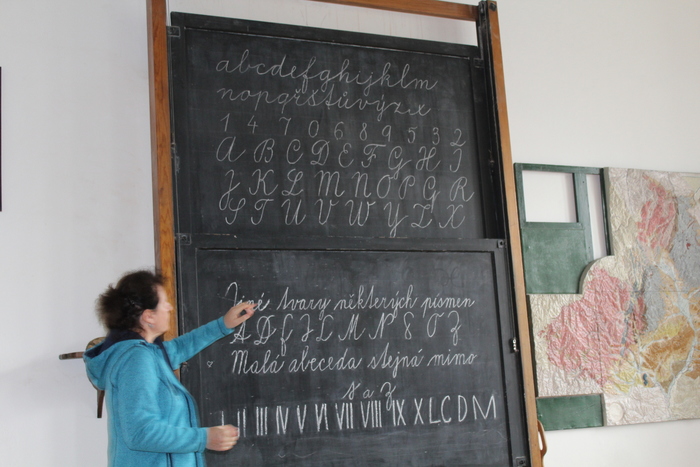 abcdefghijklm
nopqřštůvýzx
1 4 7 0 6 8 9 5 3 2
A B C D E F G H I
J K L M N O P Q R
S T U V W Y Z X
Jiné tvary některých písmen
A D f H L M N S O Z
Malá abeceda stejná mimo
s a z
I II III IV V VI VII VIII IX X L C D M